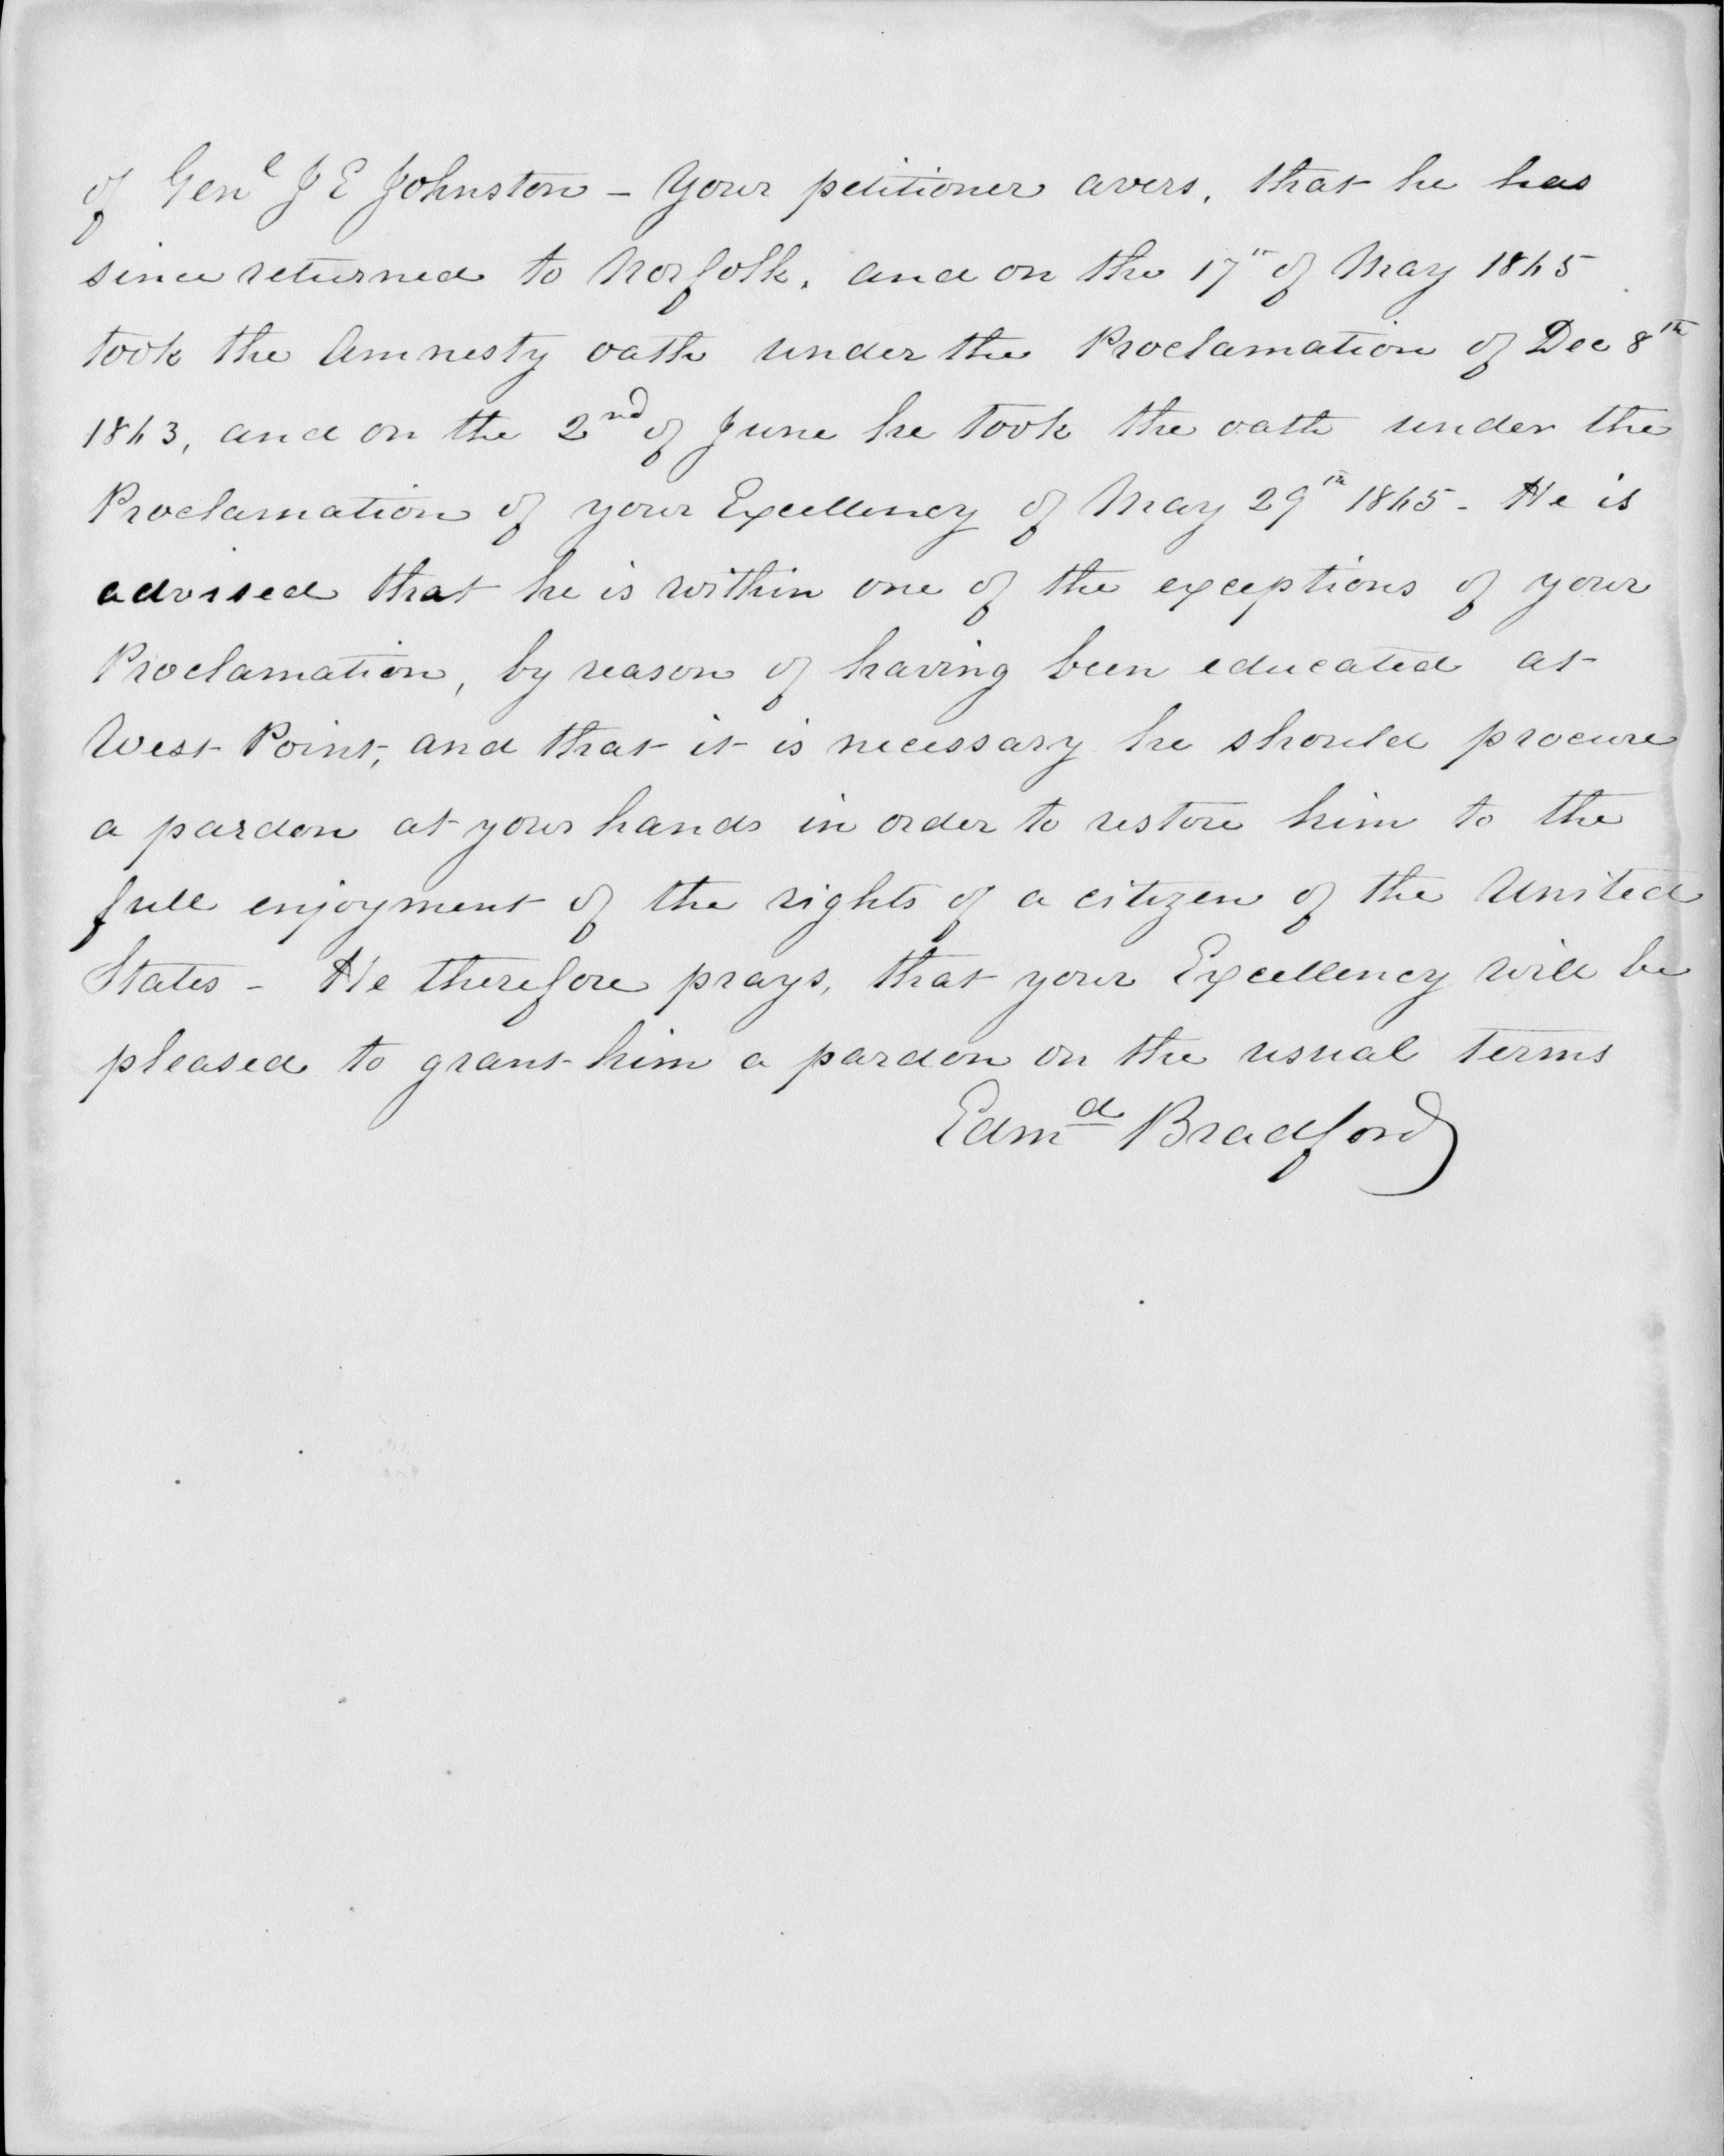 of Genl J E Johnston - Your petitioner avers, that he has
since returned to Norfolk, and on the 17th of May 1865
took the Amnesty oath under the Proclamation of Dec 8th
1863, and on the 2nd of June he took the oath under the
Proclamation of your Excellency of May 29th 1865 - He is
advised that he is within one of the exceptions of your
Proclamation, by reason of having been educated at
West Point, and that it is necessary he should procure
a pardon at your hands in order to restore him to the
full enjoyment of the rights of a citizen of the United
States - He therefore prays, that your Excellency will be
pleased to grant him a pardon on the usual terms
Edmd Bradford